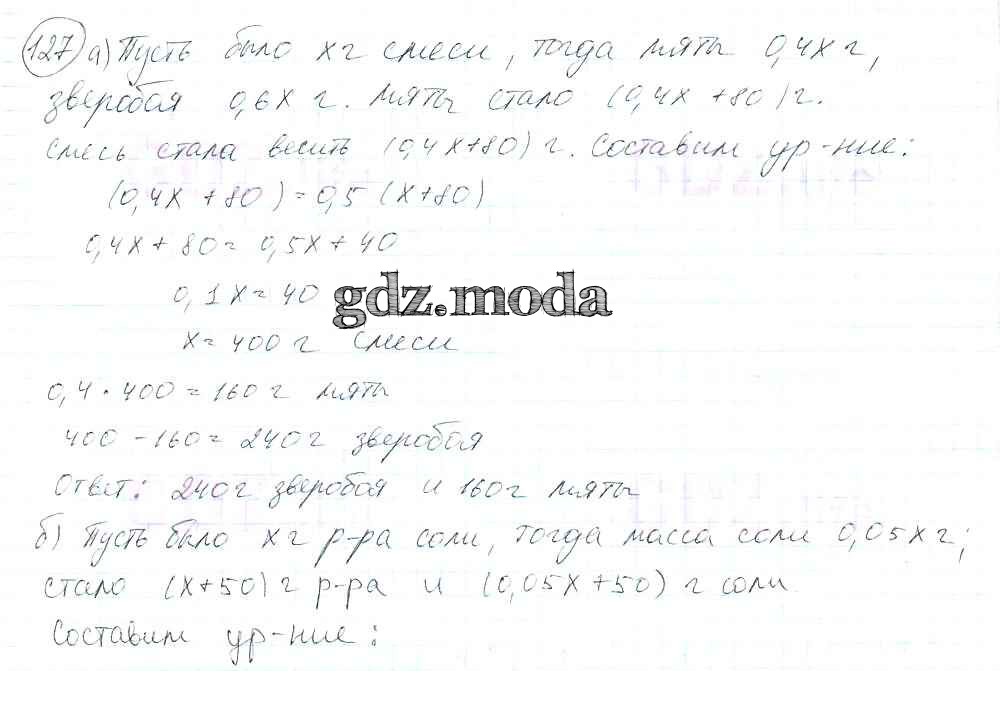 127 а) Пусть было x г смеси, тогда мяты 0,4x г,
зверобоя 0,6x г. Мяты стало (0,4x + 80) г.
Смесь стала весить (0,4x+80) г. Составим ур-ние:
(0,4x + 80) = 0,5 (x+80)
0,4x + 80 = 0,5x + 40
0,1x = 40
gdz.moda
x = 400 г смеси
0,4 · 400 = 160 г мяты
400 - 160 = 240 г зверобоя
Ответ: 240 г зверобоя и 160 г мяты
б) Пусть было x г р-ра соли, тогда масса соли 0,05x г;
стало (x+50) г р-ра и (0,05x + 50) г соли
Составим ур-ние: